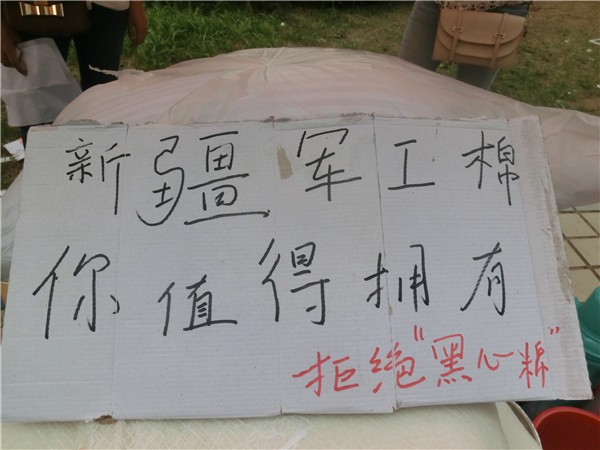 新疆军工棉
你值得拥有
拒绝"黑心棉"